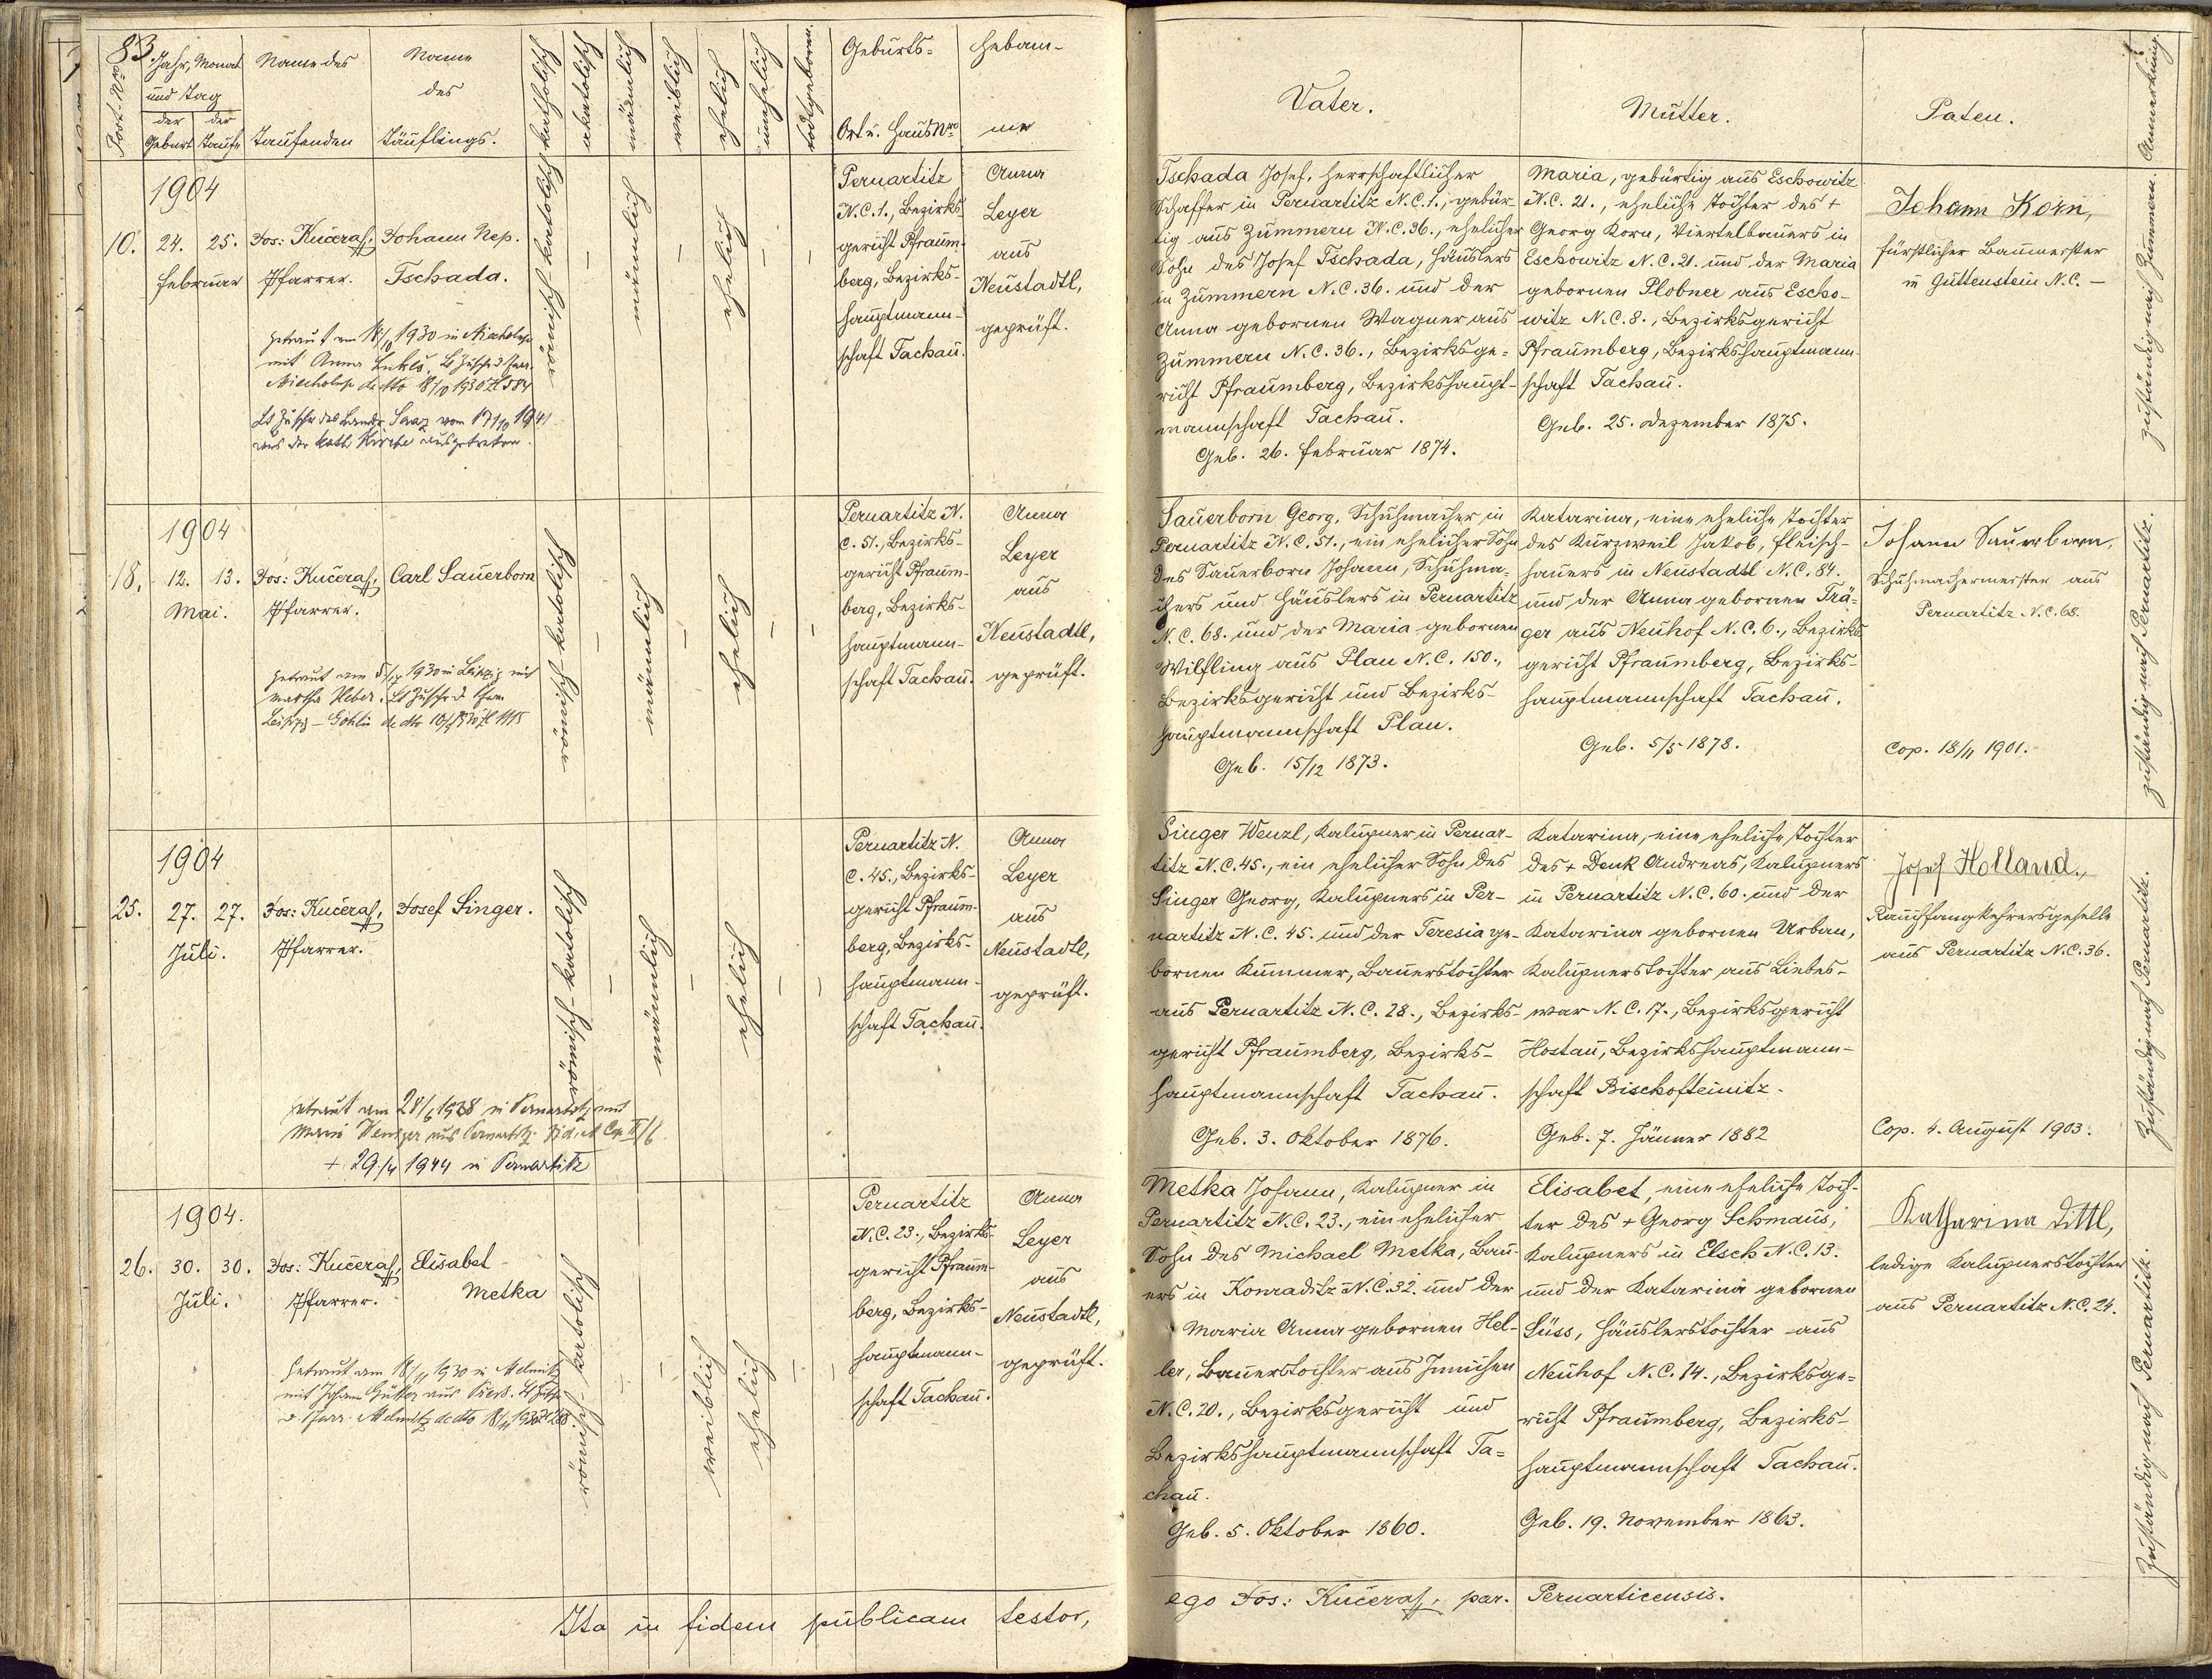 83
Port-Nro
Jahr, Monat
und Tag
der Geburt
der Taufe
Name des
Taufenden
Name
des
Täuflings.
katholisch
akatolisch
männlich
weiblich
ehelich
unehelich
todtgeboren.
Geburts-
Ort u. Haus Nro
Hebam-
me
Vater.
Mutter.
Paten.
Anmerkung.
1904
10. 24. 25.
Februar
Jos: Kučera,
Pfarrer.
Johann Nep.
Tschada.
getraut am 18/10 1930 in
mit Anna
18/10 1930
vom 17/10 1941
aus der kath. Kirche ausgetreten.
römisch-katolisch
–
männlich
–
ehelich
–
–
Pernartitz
N.C.1., Bezirks-
gericht Pfraum-
berg, Bezirks-
hauptmann-
schaft Tachau.
Anna
Leyer
aus
Neustadtl,
geprüft.
Tschada Josef, herrschaftlicher
Schaffer in Pernartitz N.C.1., gebür-
tig aus Zummern N.C.36., ehelicher
Sohn des Josef Tschada, Häuslers
in Zummern N.C.36. und der
Anna gebornen Wagner aus
Zummern N.C.36., Bezirksge-
richt Pfraumberg, Bezirkshaupt-
mannschaft Tachau.
Geb. 26. Februar 1874.
Maria, gebürtig aus Eschowitz
N.C. 21., eheliche Tochter des +
Georg Korn, Viertelbauers in
Eschowitz N.C.21. und der Maria
gebornen Plobner aus Escho-
witz N.C.8., Bezirksgericht
Pfraumberg, Bezirkshauptmann-
schaft Tachau.
Geb. 25. Dezember 1875.
Johann Korn,
fürstlicher Baumeister
in Guttenstein N.C. –
zuständig nach Zummern.
1904
18. 12. 13.
Mai.
Jos: Kučera,
Pfarrer.
Carl Sauerborn
getraut am 1930 in Leipzig mit
Martha
Leipzig – Gohlis
römisch-katolisch
–
männlich
–
ehelich
–
–
Pernartitz N.
C. 51., Bezirks-
gericht Pfraum-
berg, Bezirks-
hauptmann-
schaft Tachau.
Anna
Leyer
aus
Neustadtl,
geprüft.
Sauerborn Georg, Schuhmacher in
Pernartitz N.C.51., ein ehelicher Sohn
des Sauerborn Johann, Schuhma-
chers und Häuslers in Pernartitz
N.C. 68. und der Maria gebornen
Wilfling aus Plan N.C. 150.,
Bezirksgericht und Bezirks-
hauptmannschaft Plan.
Geb. 15/12 1873.
Katarina, eine eheliche Tochter
des Kurzweil Jakob, Fleisch-
hauers in Neustadtl N.C. 84.
und der Anna gebornen Trä-
ger aus Neuhof N.C.6., Bezirks-
gericht Pfraumberg, Bezirks-
hauptmannschaft Tachau.
Geb. 5/5 1878.
Johann Sauerborn,
Schuhmachermeister aus
Pernartitz N.C.68.
Cop. 18/11 1901.
zuständig nach Pernartitz.
1904
25. 27. 27.
Juli.
Jos: Kučera,
Pfarrer.
Josef Singer.
getraut am 28/6 1928 in Pernartitz mit
Maria aus Pernartitz.
+ 29./4 1944 in Pernartitz
römisch-katolisch
–
männlich
–
ehelich
–
–
Pernartitz N.
C. 45., Bezirks-
gericht Pfraum-
berg, Bezirks-
hauptmann-
schaft Tachau.
Anna
Leyer
aus
Neustadtl,
geprüft.
Singer Wenzl, Kalupner in Pernar-
titz N.C.45., ein ehelicher Sohn des
Singer Georg, Kalupners in Per-
nartitz N.C. 45. und der Teresia ge-
bornen Kummer, Bauerstochter
aus Pernartitz N.C. 28., Bezirks-
gericht Pfraumberg, Bezirks-
hauptmannschaft Tachau.
Geb. 3. Oktober 1876.
Katarina, eine eheliche Tochter
des + Denk Andreas, Kalupners
in Pernartitz N.C. 60. und der
Katarina gebornen Urban,
Kalupnerstochter aus Liebes-
war N.C. 17., Bezirksgericht
Hostau, Bezirkshauptmann-
schaft Bischofteinitz.
Geb. 7. Jänner 1882
Josef Holland,
Rauchfangkehrersgeselle
aus Pernartitz N.C.36.
Cop. 4. August 1903.
Zuständig nach Pernartitz.
1904.
26. 30. 30.
Juli.
Jos: Kučera,
Pfarrer.
Elisabet
Metka
getraut am 18/11 1930 in
mit Johann aus
römisch-katolisch
–
–
weiblich
ehelich
–
–
Pernartitz
N.C.23., Bezirks-
gericht Pfraum-
berg, Bezirks-
hauptmann-
schaft Tachau.
Anna
Leyer
aus
Neustadtl,
geprüft.
Metka Johann, Kalupner in
Pernartitz N.C. 23., ein ehelicher
Sohn des Michael Metka, Bau-
ers in Konraditz N.C.32. und der
Maria Anna gebornen Hel-
ler, Bauerstochter aus
N.C.20., Bezirksgericht und
Bezirkshauptmannschaft Ta-
chau.
Geb. 5. Oktober 1860.
Elisabet, eine eheliche Toch-
ter des + Georg Schmaus,
Kalupners in Elsch N.C.13.
und der Katarina gebornen
Süss, Häuslerstochter aus
Neuhof N.C. 14., Bezirksge-
richt Pfraumberg, Bezirks-
hauptmannschaft Tachau.
Geb. 19. November 1863.
Katharina Dittl,
ledige Kalupnerstochter
aus Pernartitz N.C. 24.
Zuständig nach Pernartitz.
Ita in fidem publicam testor,
ego Jos: Kučera, par. Pernarticensis.